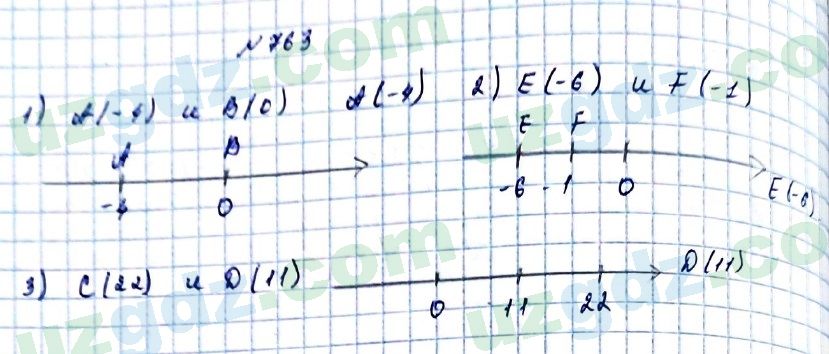 № 763
1) A(-4) и B(0) A(-4)
A B
-4 0
2) E(-6) и F(-1)
E F
-6 -1 0
E(-6)
3) C(22) и D(11) D(11)
0 11 22
uzgdz.com
uzgdz.com
uzgdz.com
uzgdz.com